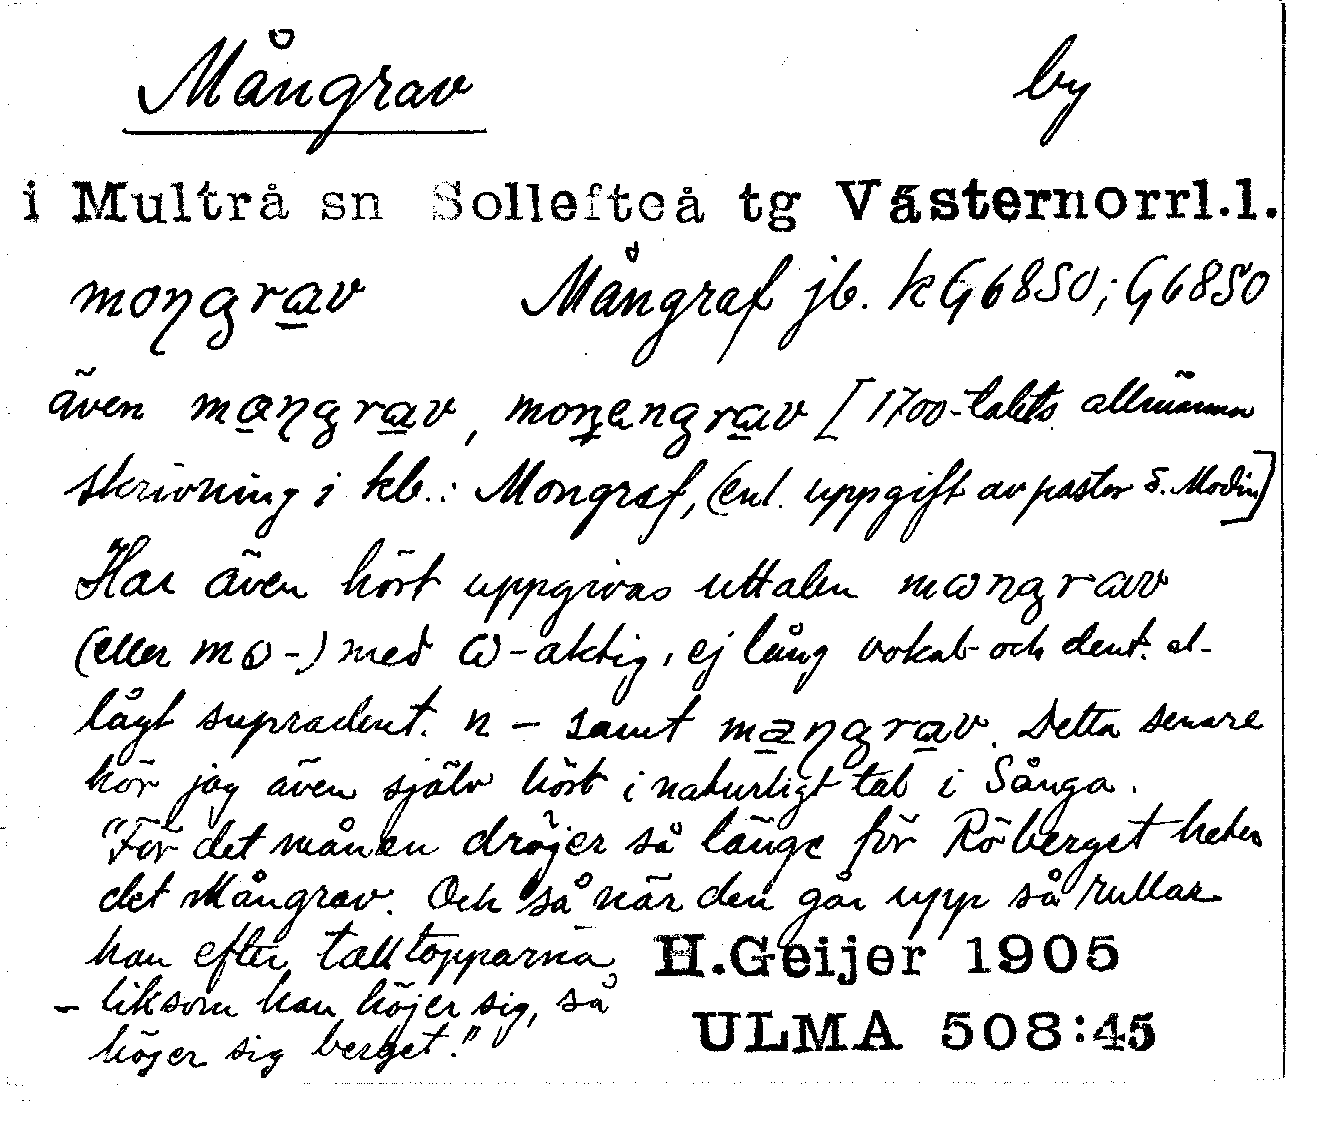 Mångrav by
i Multrå sn Sollefteå tg Västernorrl.l.
moŋgrav Mångraf jb. k G6850; G6850
även maŋgrav, monengrav [1700-talets allmänna
skrivning i kb.: Mongraf, (enl. uppgift av pastor E. Modin)]
Har även hört uppgivas uttalen mωngrav
(eller mω-) med ω-aktig, ej lång vokal och dent. el-
lågt supradent. n – samt maŋgrav. Detta senare
hör jag även själv hört i naturligt tal i Sånga.
"För det månen dröjer så länge för Röberget heter
det Mångrav. Och så när den går upp så rullar
han efter talltopparna,
– liksom han höjer sig, så
höjer sig berget."
H.Geijer 1905
ULMA 508:45